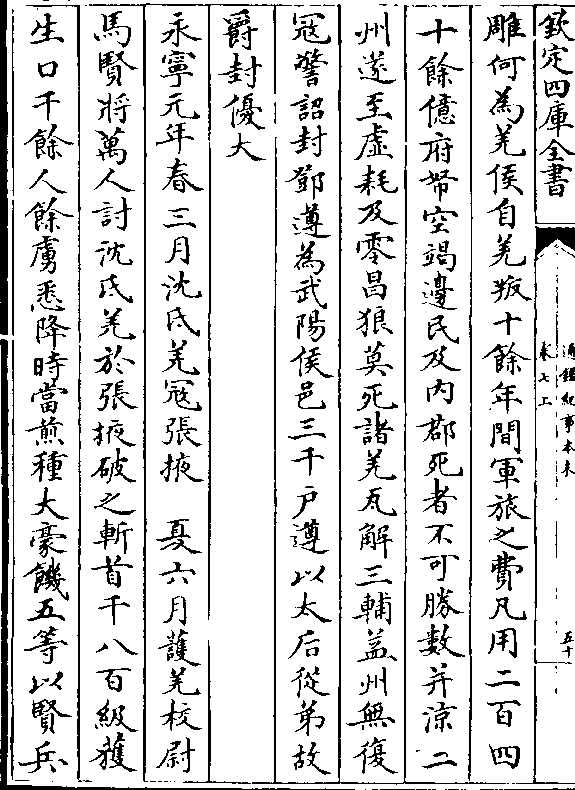 欽定四庫全書
通鑑紀事本末
卷七上
五十
雕何為羌侯自羌叛十餘年間軍旅之費凡用二百四
十餘億府帑空竭邊民及內郡死者不可勝數并涼二
州遂至虛耗及零昌狼莫死諸羌瓦解三輔益州無復
寇警詔封鄧遵為武陽侯邑三千户遵以太后從弟故
爵封優大
永寧元年春三月沈氐羌寇張掖　夏六月護羌校尉
馬賢將萬人討沈氐羌於張掖破之斬首千八百級獲
生口千餘人餘虜悉降時當煎種大豪饑五等以賢兵